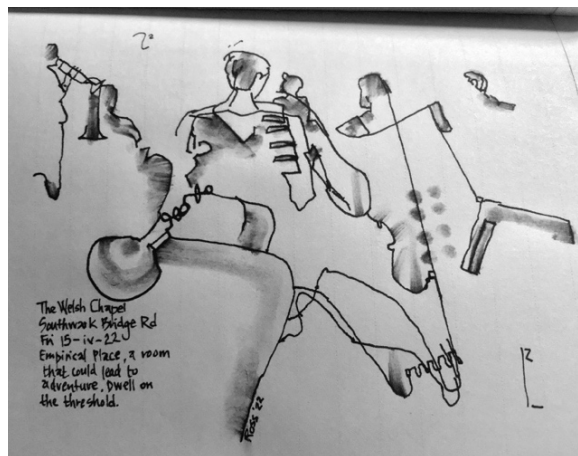 The Welsh Chapel
Southwark Bridge Rd
Fri 15-iv-22
Empirical Place, a room
that could lead to
adventure. Dwell on
the threshold.
ROSS '22